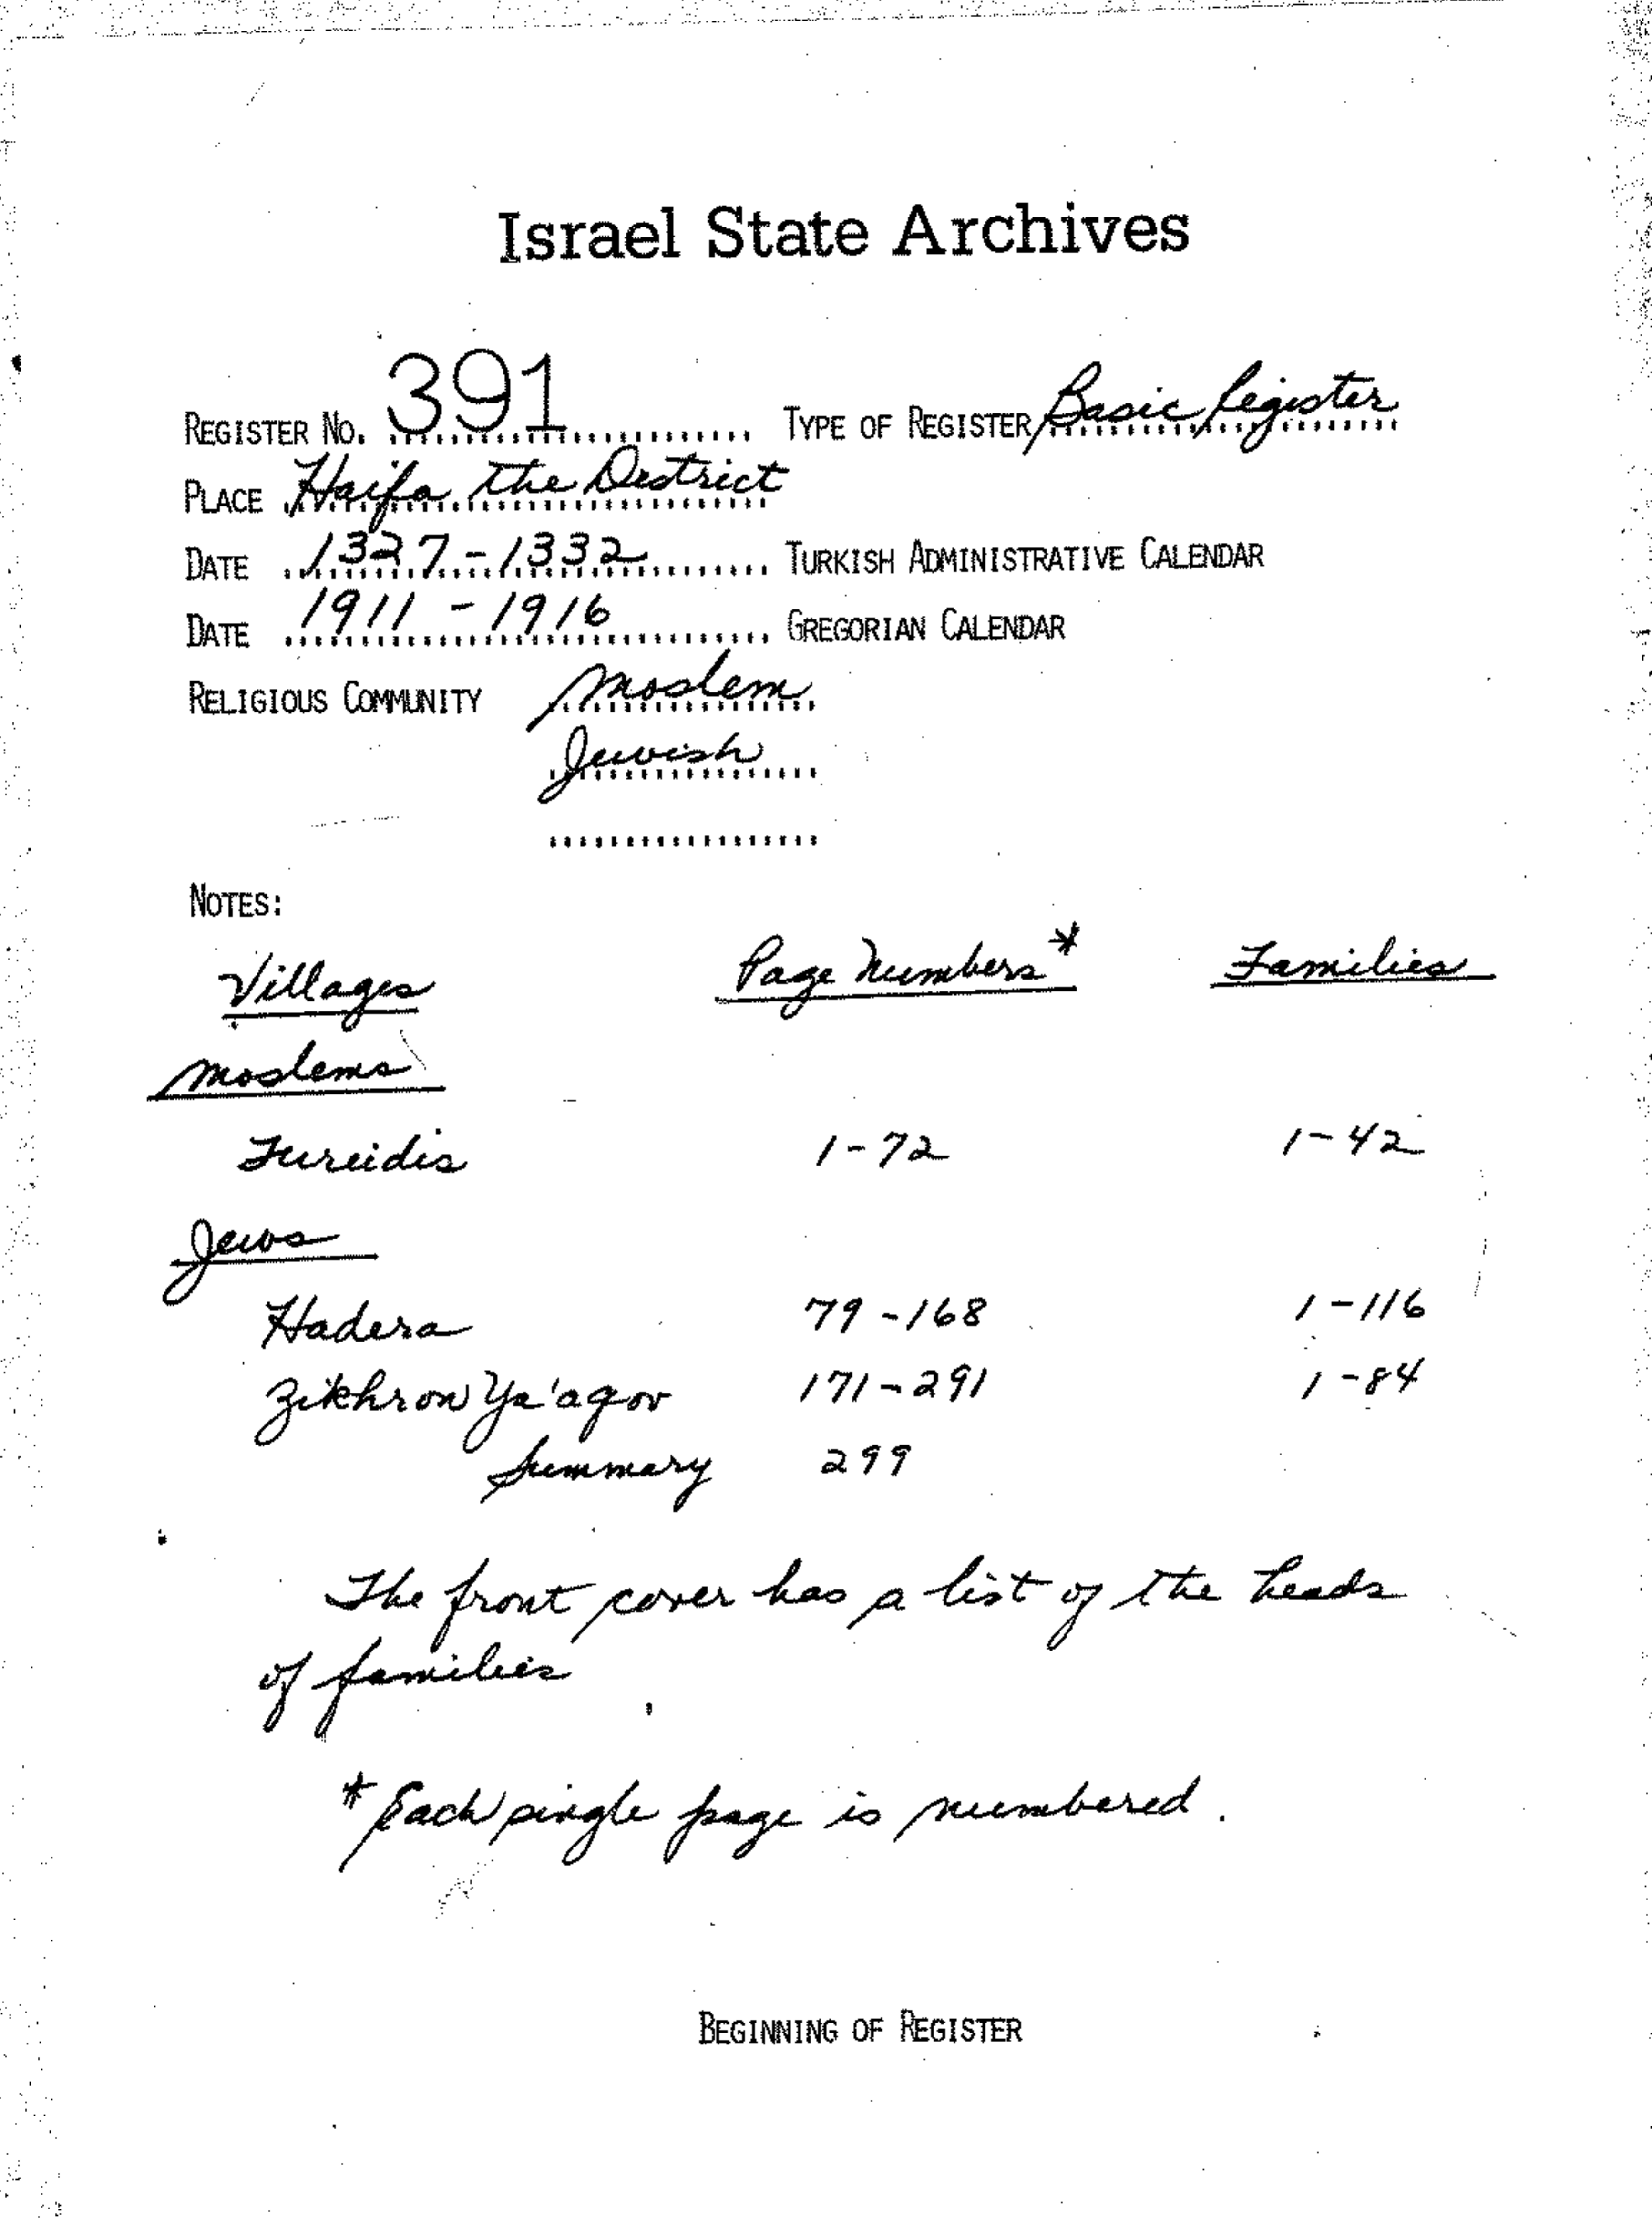 Israel State Archives
REGISTER NO. 391 TYPE OF REGISTER Basic Register
PLACE Haifa the District
DATE 1327-1332 TURKISH ADMINISTRATIVE CALENDAR
DATE 1911-1916 GREGORIAN CALENDAR
RELIGIOUS COMMUNITY Moslem
Jewish
NOTES:
Villages Page Numbers* Families
Moslems
Fureidis 1-72 1-42
Jews
Hadera 79-168 1-116
Zikhron Ya'aqov 171-291 1-84
Summary 299
The front cover has a list of the heads
of families
* Each single page is numbered.
BEGINNING OF REGISTER